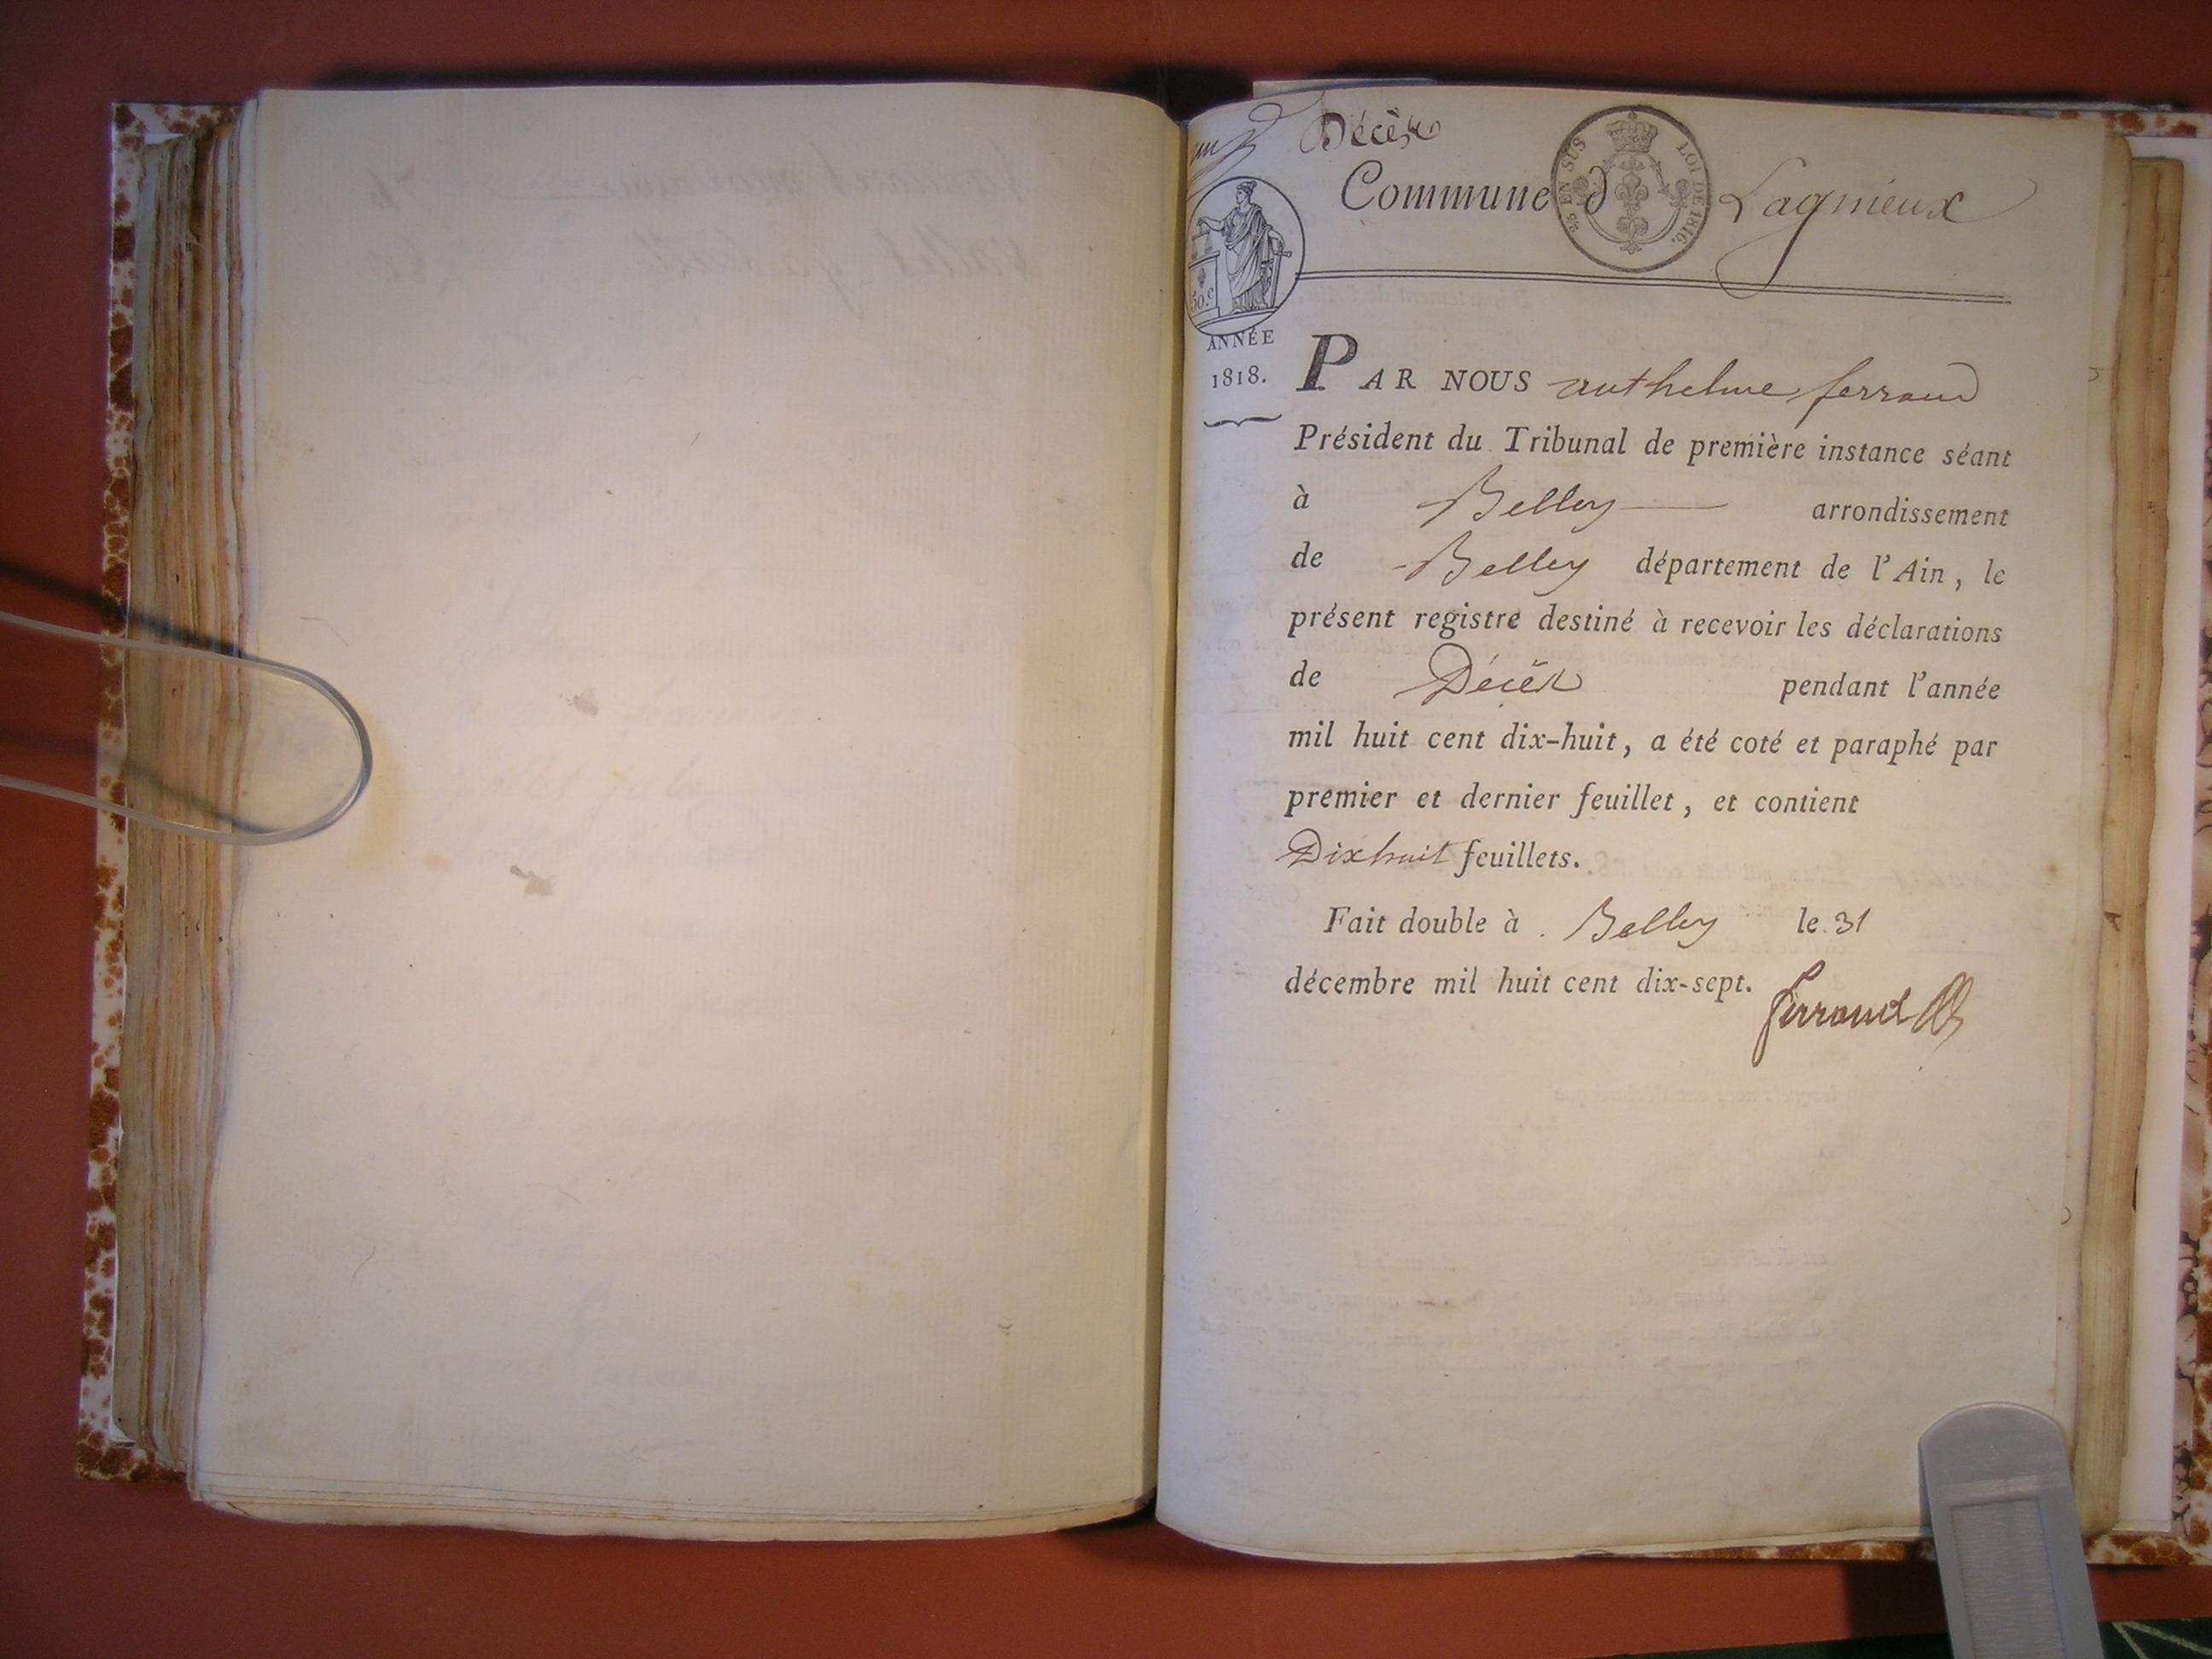 Décès
Commune d Lagnieux
25 EN SUS LOI DE 1816.
50.c
ANNÉE
1818.
PAR NOUS anthelme ferrand
Président du Tribunal de première instance séant
à Belley arrondissement
de Belley département de l'Ain, le
présent registre destiné à recevoir les déclarations
de Décès pendant l'année
mil huit cent dix-huit, a été coté et paraphé par
premier et dernier feuillet, et contient
Dixhuit feuillets.
Fait double à Belley le 31
décembre mil huit cent dix-sept.
ferrand